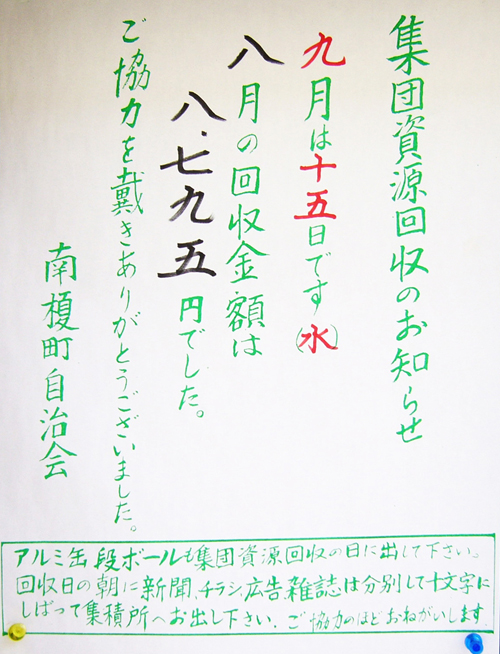 集団資源回収のお知らせ
九月は十五日です(水)
八月の回収金額は
八.七九五円でした。
ご協力を戴きありがとうございました。
南榎町自治会
アルミ缶段ボールも集団資源回収の日に出して下さい。
回収日の朝に新聞、チラシ、広告、雑誌は分別して十文字に
しばって集積所へお出し下さい。ご協力のほどおねがいします